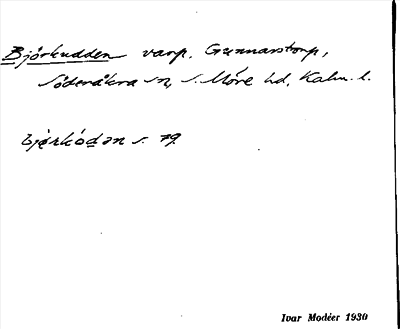 Björkudden varp, Gunnarstorp,
Söderåkra sn, S. Möre hd, Kalm. l.
bjǫrkódən s. 79
Ivar Modéer 1930